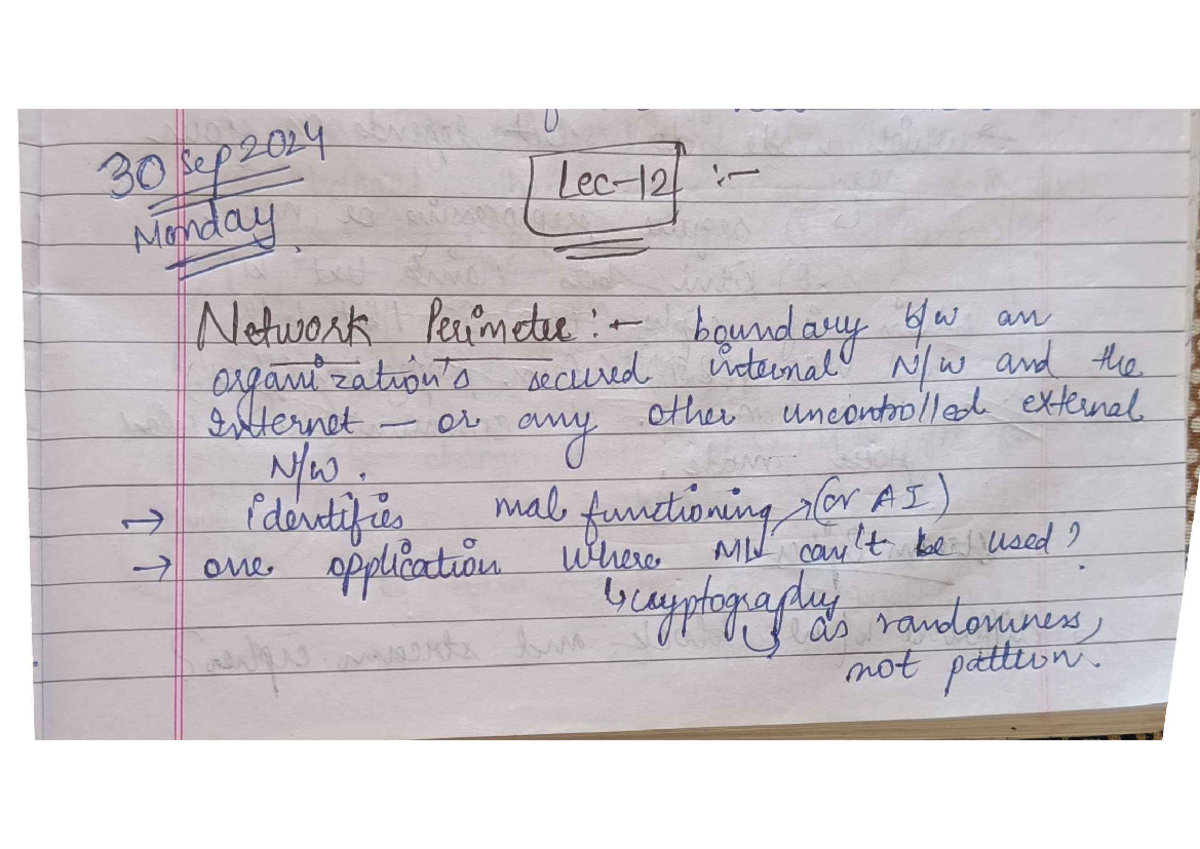 30 Sep 2024
Monday.
Lec-12 :-
Network Perimeter :- boundary b/w an
organization's secured internal N/w and the
Internet — or any other uncontrolled external
N/w.
→ identifies mal functioning (or AI)
→ one application where ML can't be used?
↳ cryptography
↳ as randomness,
not pattern.